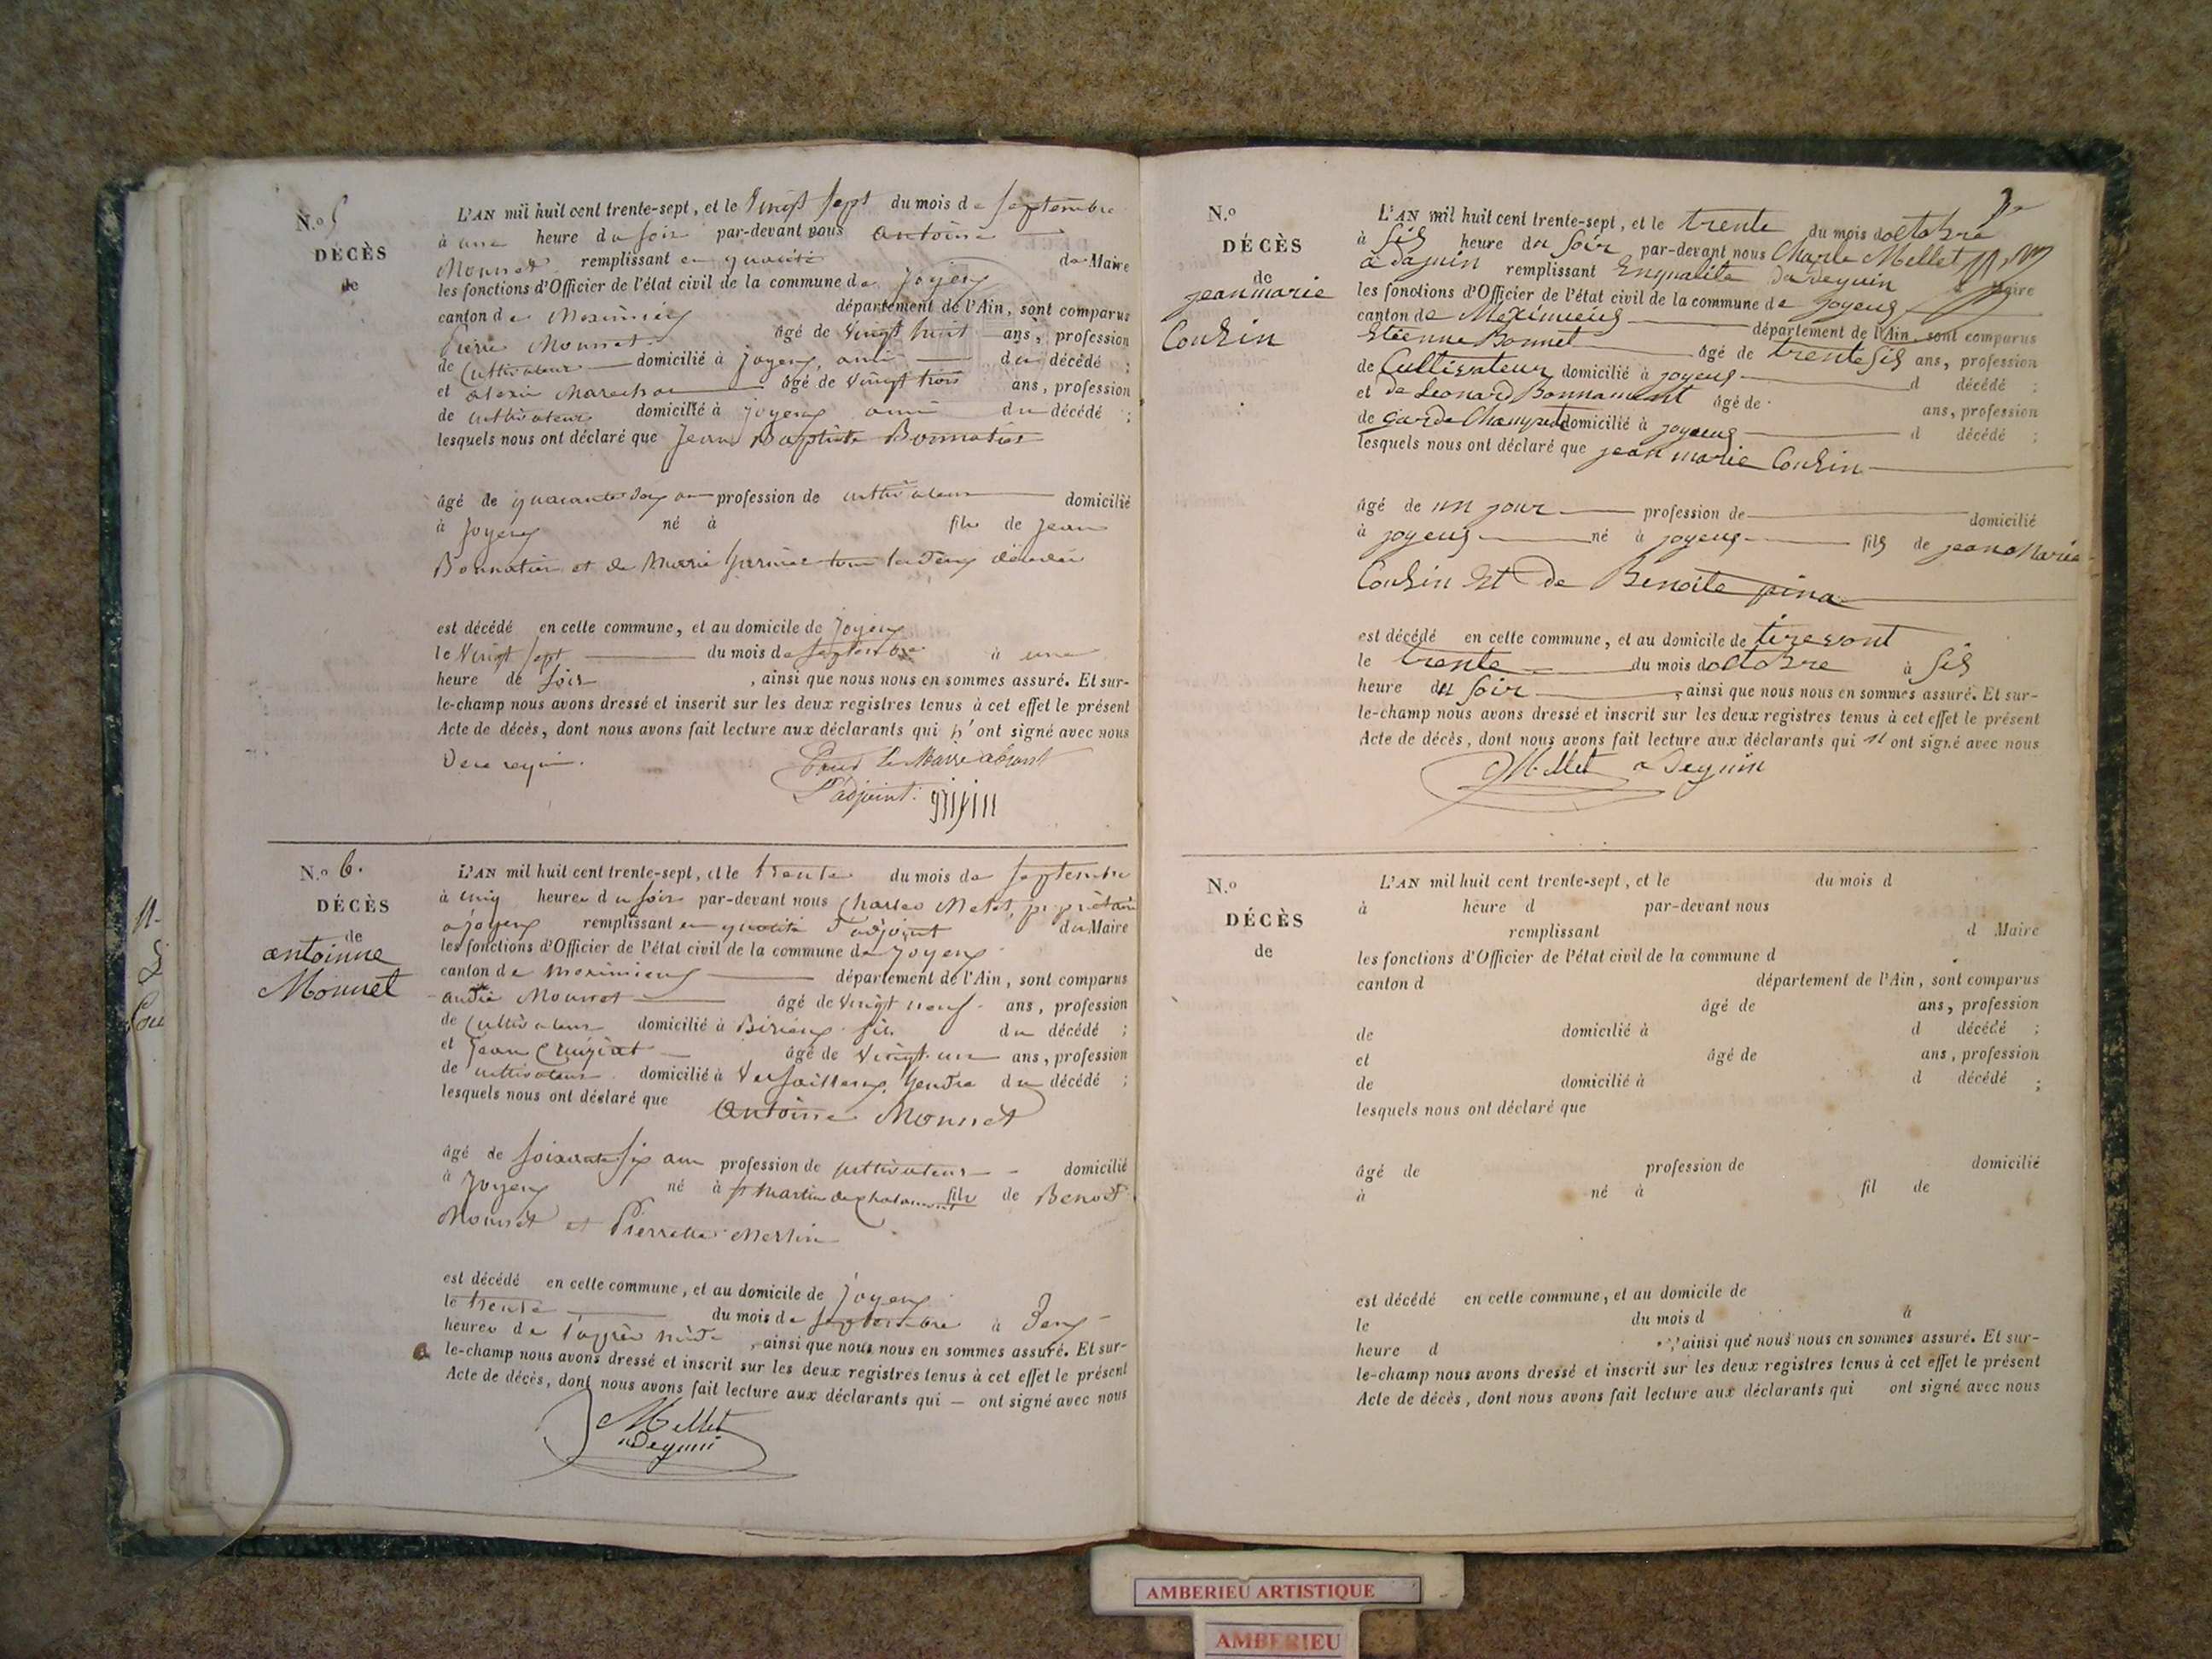 N.o 5
DÉCÈS
de
L'AN mil huit cent trente-sept, et le Vingt sept du mois de septembre
à une heure du soir par-devant nous antoine
Monnet remplissant en qualité de Maire
les fonctions d'Officier de l'état civil de la commune de Joyeux
canton de Meximieux département de l'Ain, sont comparus
Pierre Monnet âgé de Vingt huit ans, profession
de Cultivateur domicilié à Joyeux, ami du décédé ;
et alexis Marechal âgé de Vingt trois ans, profession
de cultivateur domicilié à Joyeux ami du décédé ;
lesquels nous ont déclaré que Jean Baptiste Bonnatier
âgé de quarante six ans profession de cultivateur domicilié
à Joyeux né à fils de Jean
Bonnatier et de Marie tous les deux décédés
est décédé en cette commune, et au domicile de Joyeux
le Vingt sept du mois de septembre à une
heure de soir , ainsi que nous nous en sommes assuré. Et sur-
le-champ nous avons dressé et inscrit sur les deux registres tenus à cet effet le présent
Acte de décès, dont nous avons fait lecture aux déclarants qui n'ont signé avec nous
Pour le Maire absent
L'adjoint.
N.o 6.
DÉCÈS
de
antoinne
Monnet
L'AN mil huit cent trente-sept, et le trente du mois de septembre
à cinq heures du soir par-devant nous Charles Melet, propriétaire
a joyeux remplissant en qualité d'adjoint du Maire
les fonctions d'Officier de l'état civil de la commune de Joyeux
canton de meximieux département de l'Ain, sont comparus
andré Monnet âgé de Vingt neuf ans, profession
de Cultivateur domicilié à Birieux fils du décédé ;
et Jean Cruiziat âgé de Vingt un ans, profession
de cultivateur domicilié à Versailleux, Gendre du décédé ;
lesquels nous ont déclaré que Antoine Monnet
âgé de soixante six ans profession de cultivateur domicilié
à Joyeux né à st Martin de Chalamont fils de Benoit
Monnet et Pierrette Merlin
est décédé en cette commune, et au domicile de Joyeux
le trente du mois de septembre à Deux
heures de l'apprès midi , ainsi que nous nous en sommes assuré. Et sur-
le-champ nous avons dressé et inscrit sur les deux registres tenus à cet effet le présent
Acte de décès, dont nous avons fait lecture aux déclarants qui — ont signé avec nous
Mellet
N.o
DÉCÈS
de
jean marie
Couzin
L'AN mil huit cent trente-sept, et le trente du mois doctobre
à Sis heure du Soir par-devant nous Charle Mellet
remplissant Enqualite Maire
les fonctions d'Officier de l'état civil de la commune de joyeus
canton de Meximieus département de l'Ain, sont comparus
Etienne Bonnet âgé de trente sis ans, profession
de Cultivateur domicilié à joyeus d décédé ;
et de Leonard Bonnament âgé de ans, profession
de garde Champet domicilié à joyeus d décédé ;
lesquels nous ont déclaré que jean marie Couzin
âgé de un jour profession de domicilié
à joyeus né à joyeus fils de jean Marie
Couzin Et de Benoite pina
est décédé en cette commune, et au domicile de tiresont
le trente du mois doctobre à Sis
heure du Soir , ainsi que nous nous en sommes assuré. Et sur-
le-champ nous avons dressé et inscrit sur les deux registres tenus à cet effet le présent
Acte de décès, dont nous avons fait lecture aux déclarants qui n ont signé avec nous
Mellet
N.o
DÉCÈS
de
L'AN mil huit cent trente-sept, et le du mois d
à heure d par-devant nous
remplissant d Maire
les fonctions d'Officier de l'état civil de la commune d
canton d département de l'Ain, sont comparus
âgé de ans, profession
de domicilié à d décédé ;
et âgé de ans, profession
de domicilié à d décédé ;
lesquels nous ont déclaré que
âgé de profession de domicilié
à né à fil de
est décédé en cette commune, et au domicile de
le du mois d à
heure d , ainsi que nous nous en sommes assuré. Et sur-
le-champ nous avons dressé et inscrit sur les deux registres tenus à cet effet le présent
Acte de décès, dont nous avons fait lecture aux déclarants qui ont signé avec nous
AMBERIEU ARTISTIQUE
AMBERIEU